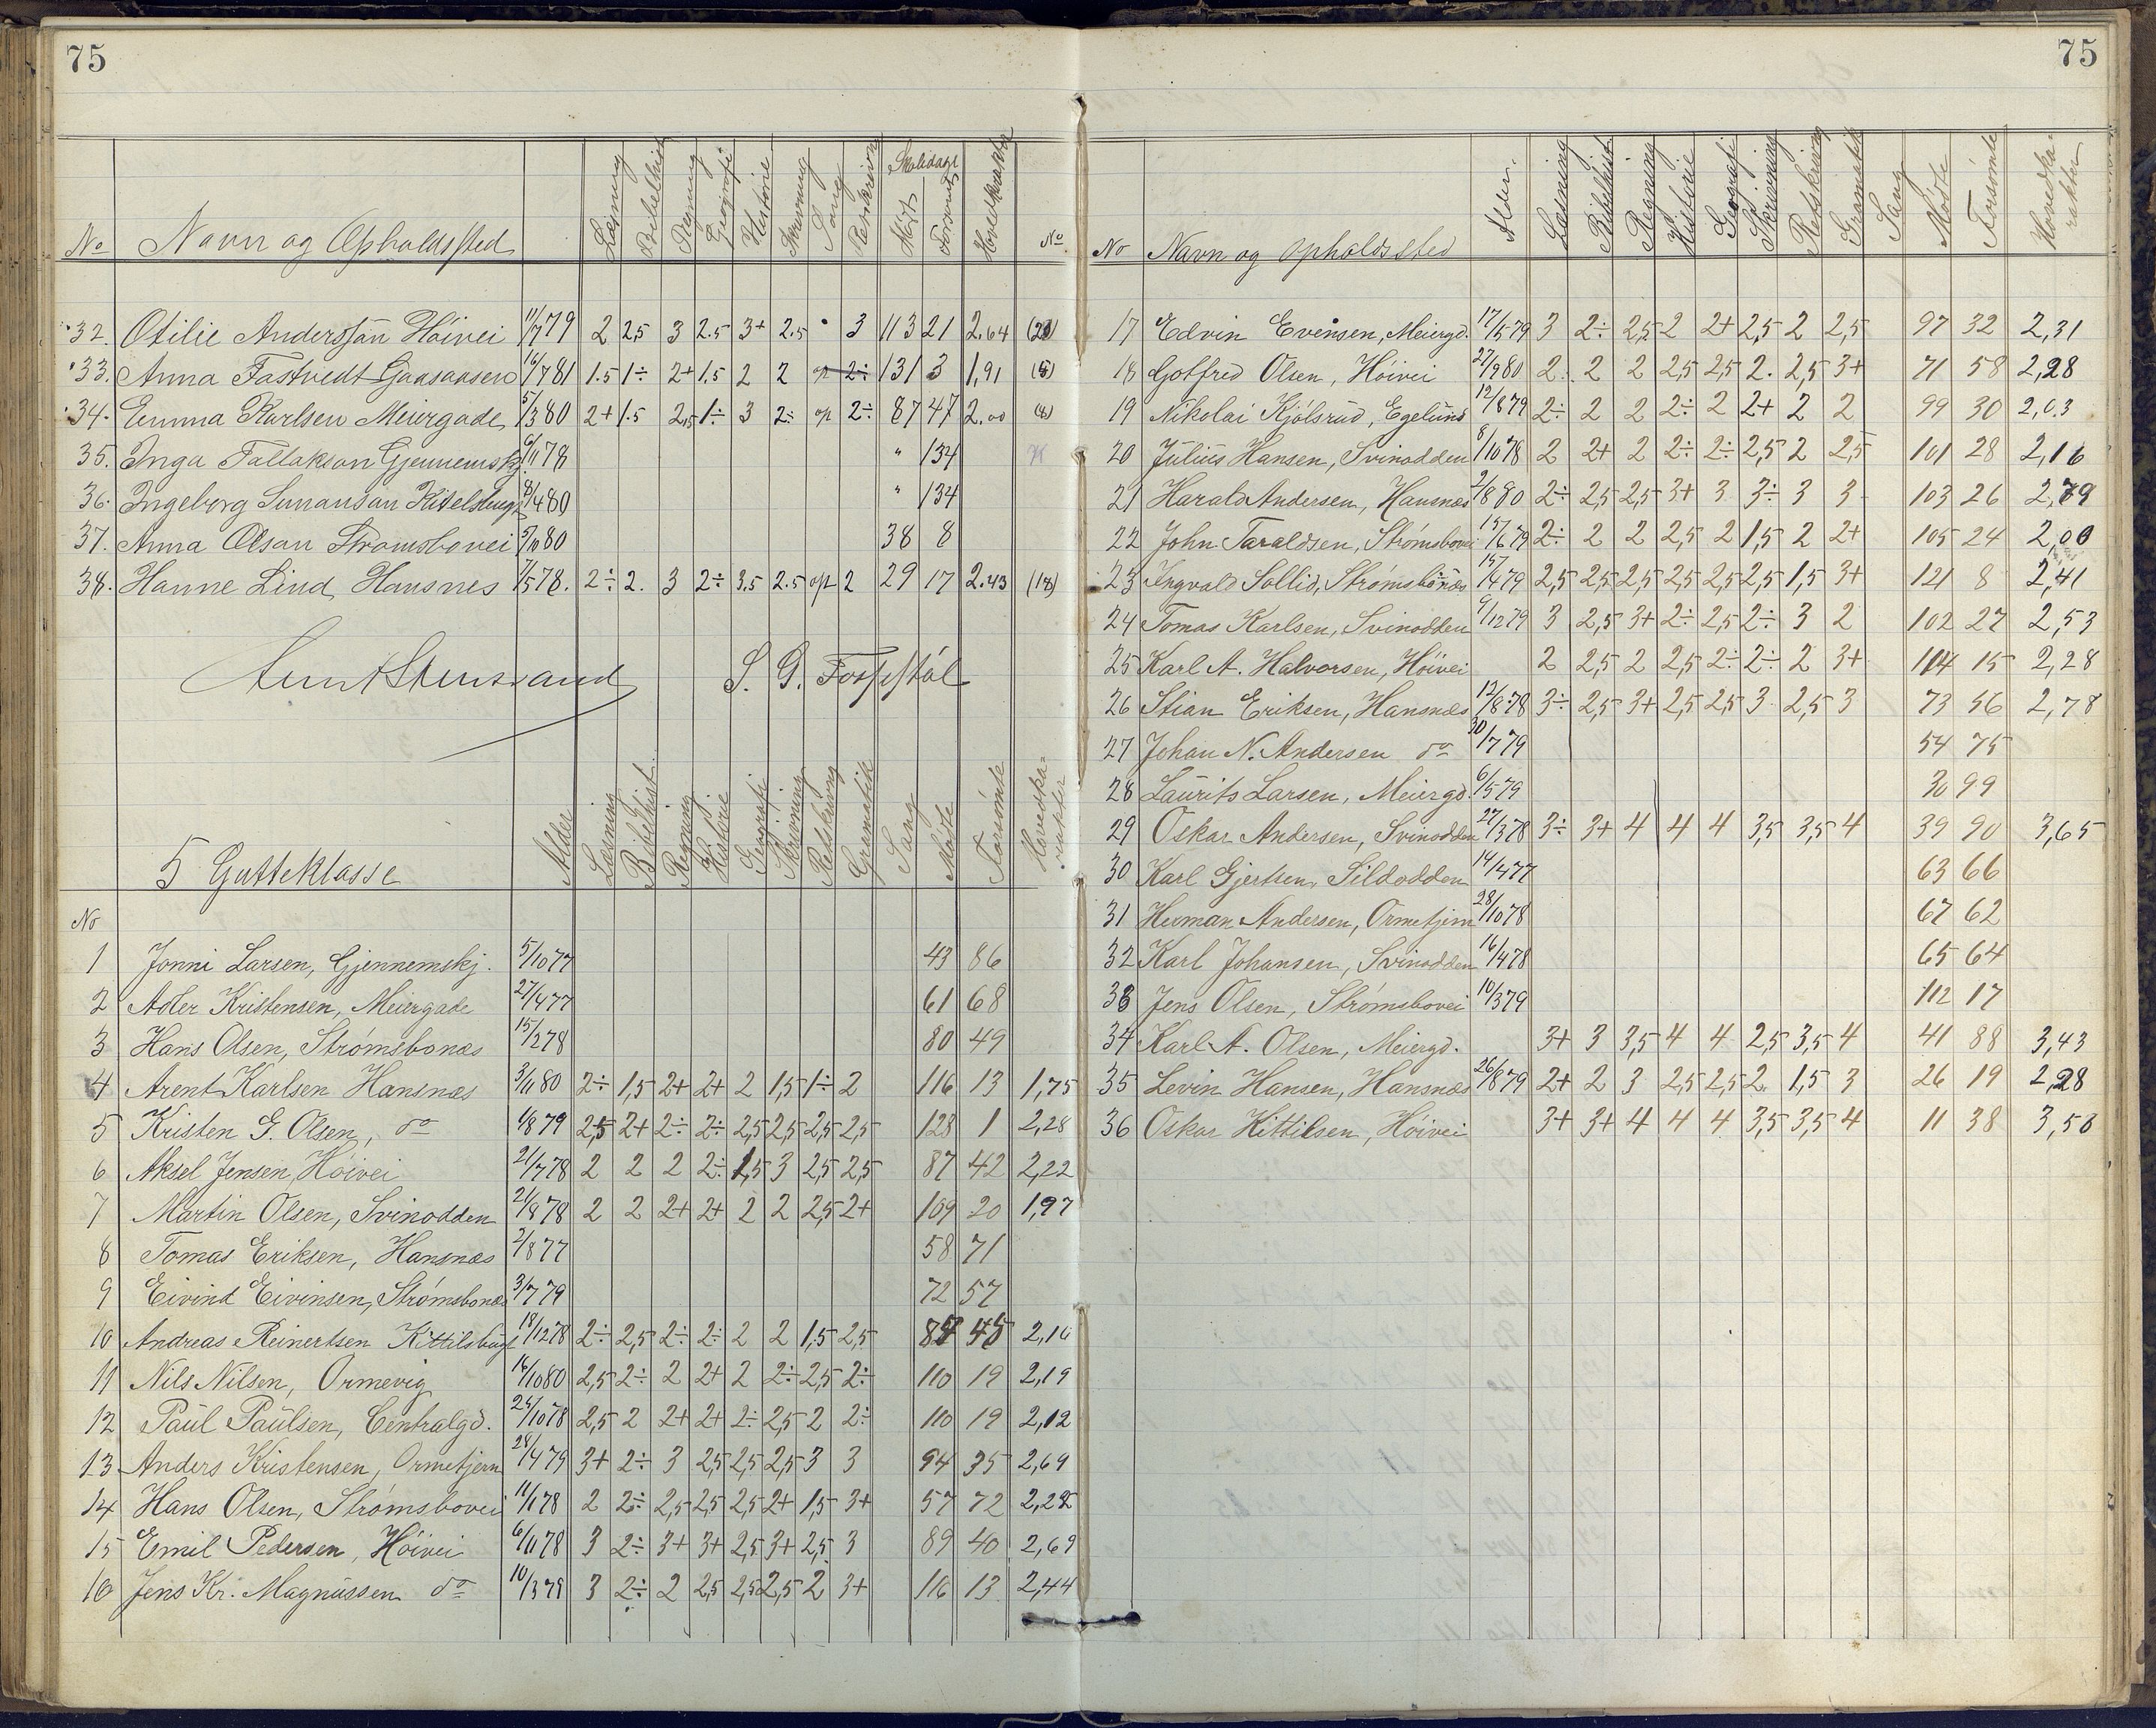 75
No Navn og Opholdssted Læsning Bibelhist Regning Geografi Historie Skrivning Sang Retskrivning Skoledage Mødt Forsømt Hovedkarakter No
32. Otilie Anderssøn Höivei 11/7 79 2 2,5 3 2.5 3+ 2.5 3 113 21 2.64
33. Anna Fastvedt 16/7 81 1.5 1÷ 2+ 1.5 2 2 op 2÷ 131 3 1,91
34. Emma Karlsen Meiergade 5/3 80 2+ 1.5 2,5 1÷ 3 2÷ op 2÷ 87 47 2.00
35. Inga Tallakson Gjennemskj. 6/11 78 " 134
36. Ingeborg 8/4 80 " 134
37. Anna Olsan Stromsbovei 5/10 80 38 8
38. Hanne Lind Hansnes 7/5 78. 2÷ 2. 3 2÷ 3.5 2.5 op 2 29 17 2.43 (18)
S. G. Fosselstøl
5 Gutteklasse Alder Læsning Bibelhist. Regning Historie Geografi Skrivning Retskrivng Gramatik Sang Mødte Forsømte Hovedkarakter
No
1 Jonni Larsen, Gjennemskj. 5/10 77 43 86
2 Adler Kristensen, Meiergade 27/4 77 61 68
3 Hans Olsen, Strømsbonæs 15/2 78 80 49
4 Arent Karlsen Hansnæs 3/11 80 2÷ 1,5 2+ 2+ 2 1,5 1÷ 2 116 13 1,75
5 Kristen G. Olsen, do 1/8 79 2,5 2+ 2÷ 2÷ 2,5 2,5 2,5 2,5 128 1 2,28
6 Aksel Jensen, Höivei 21/7 78 2 2 2 2÷ 1,5 3 2,5 2,5 87 42 2,22
7 Martin Olsen, Svinodden 21/8 78 2 2 2+ 2+ 2 2 2,5 2+ 109 20 1,97
8 Tomas Eriksen, Hansnæs 2/8 77 58 71
9 Eivind Eivinsen, Strømsbonæs 3/7 79 72 57
10 Andreas Reinertsen Kittilsbugt 18/12 78 2÷ 2,5 2÷ 2÷ 2 2 1.5 2,5 84 45 2,16
11 Nils Nilsen, Ormevig 16/10 80 2,5 2÷ 2 2+ 2 2÷ 2,5 2÷ 110 19 2,19
12 Paul Paulsen, Centralgd. 25/10 78 2,5 2 2+ 2+ 2÷ 2,5 2 2÷ 110 19 2,12
13 Anders Kristensen, Ormetjern 28/4 79 3+ 2÷ 3 2,5 2,5 2,5 3 3 94 35 2,69
14 Hans Olsen, Strømsbovei 11/1 78 2 2÷ 2,5 2,5 2,5 2+ 1,5 3+ 57 72 2,22
15 Emil Pedersen, Höivei 6/11 78 3 2÷ 3+ 3+ 2,5 3+ 2,5 3 89 40 2,69
16 Jens Kr. Magnussen do 10/3 79 3 2÷ 2 2,5 2,5 2,5 2 3+ 116 13 2,44
75
No Navn og Opholdssted Alder. Læsning Bibelhist Regning Historie Geografi Skrivning Retskrivng Gramatik Sang Mødte Forsømte Hovedkarakter
17 Edvin Evensen, Meiergd. 17/5 79 3 2÷ 2,5 2 2+ 2,5 2 2,5 97 32 2,31
18 Gotfred Olsen, Höivei 27/9 80 2 2 2 2,5 2,5 2. 2,5 3+ 71 58 2,28
19 Nikolai Kjølsrud, Egelund 12/8 79 2÷ 2 2 2÷ 2 2+ 2 2 99 30 2,03
20 Julius Hansen, Svinodden 8/10 78 2 2+ 2 2÷ 2÷ 2,5 2 2,5 101 28 2,16
21 Harald Andersen, Hansnæs 2/8 80 2÷ 2,5 2,5 3+ 3 3÷ 3 3 103 26 2,79
22 John Taraldsen, Strømsbovei 15/6 79 2÷ 2 2 2,5 2 1,5 2 2+ 105 24 2,00
23 Ingvald Sollid, Strømsbonæs 15/4 79 2,5 2,5 2,5 2,5 2,5 2,5 1,5 3+ 121 8 2,41
24 Tomas Karlsen, Svinodden 9/12 79 3 2,5 3+ 2÷ 2,5 2÷ 3 2 102 27 2,53
25 Karl A. Halvorsen, Höivei 2 2,5 2 2,5 2÷ 2÷ 2 3+ 114 15 2,28
26 Stian Eriksen, Hansnæs 12/8 78 3÷ 2,5 3+ 2,5 2,5 3 2,5 3 73 56 2,78
27 Johan N. Andersen do 30/7 79 54 75
28 Laurits Larsen, Meiergd. 6/5 79 30 99
29 Oskar Andersen, Svinodden 27/3 78 3÷ 3+ 4 4 4 3,5 3,5 4 39 90 3,65
30 Karl Gjertsen, Sildodden 14/4 77 63 66
31 Herman Andersen, Ormetjern 28/10 78 67 62
32 Karl Johansen, Svinodden 16/4 78 65 64
33 Jens Olsen, Strømsbovei 10/3 79 112 17
34 Karl A. Olsen, Meiergd. 3+ 3 3,5 4 4 2,5 3,5 4 41 88 3,43
35 Levin Hansen, Hansnæs 26/8 79 2+ 2 3 2,5 2,5 2. 1,5 3 26 19 2,28
36 Oskar Kittilsen, Höivei 3+ 3+ 4 4 4 3,5 3,5 4 11 38 3,58